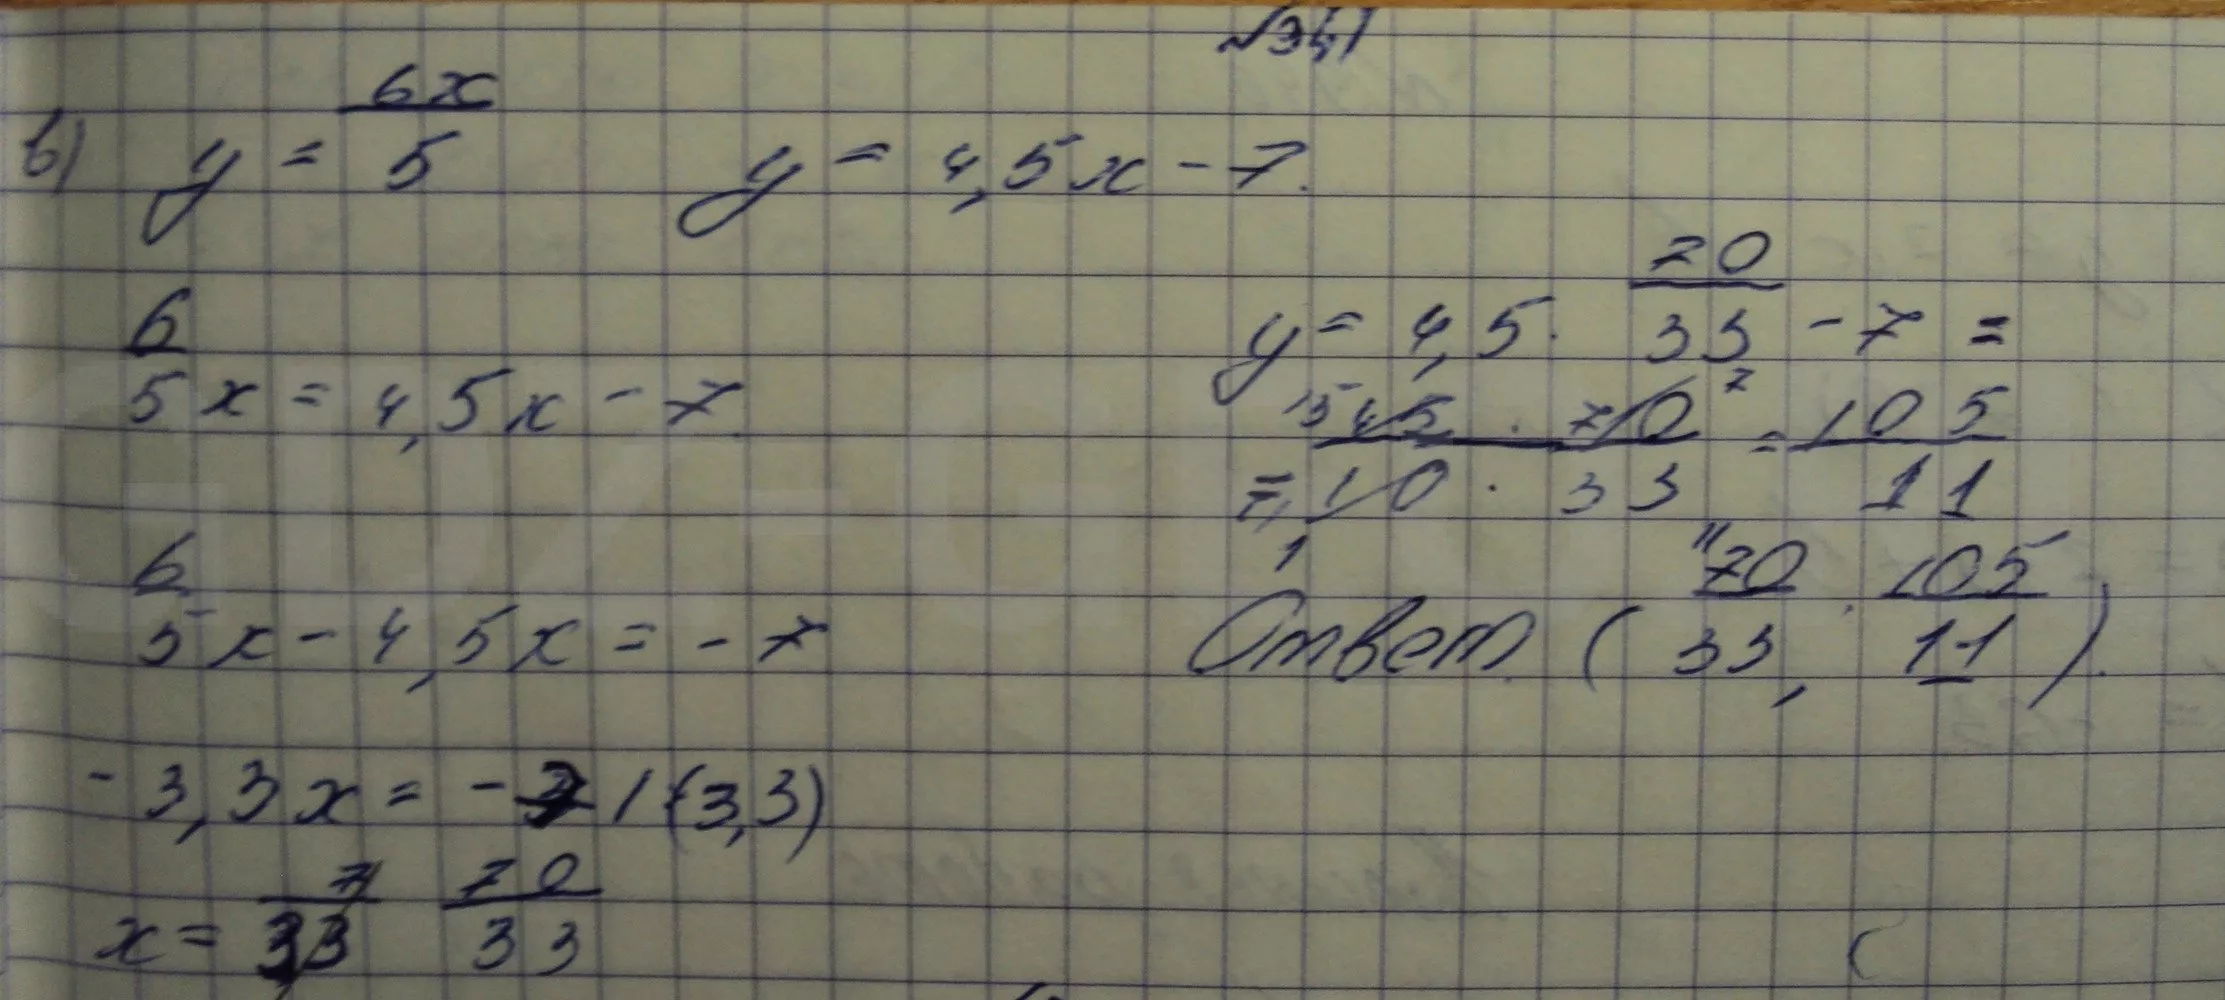 №341
в) y = 6x/5   y = 4,5x - 7.
6/5 x = 4,5x - 7.
6/5 x - 4,5x = - 7
- 3,3x = - 7 | (-3,3)
x = 7/3,3   70/33
y = 4,5 · 70/33 - 7 =
= 45 · 70 / 10 · 33 = 105/11
Ответ. (70/33, 105/11).